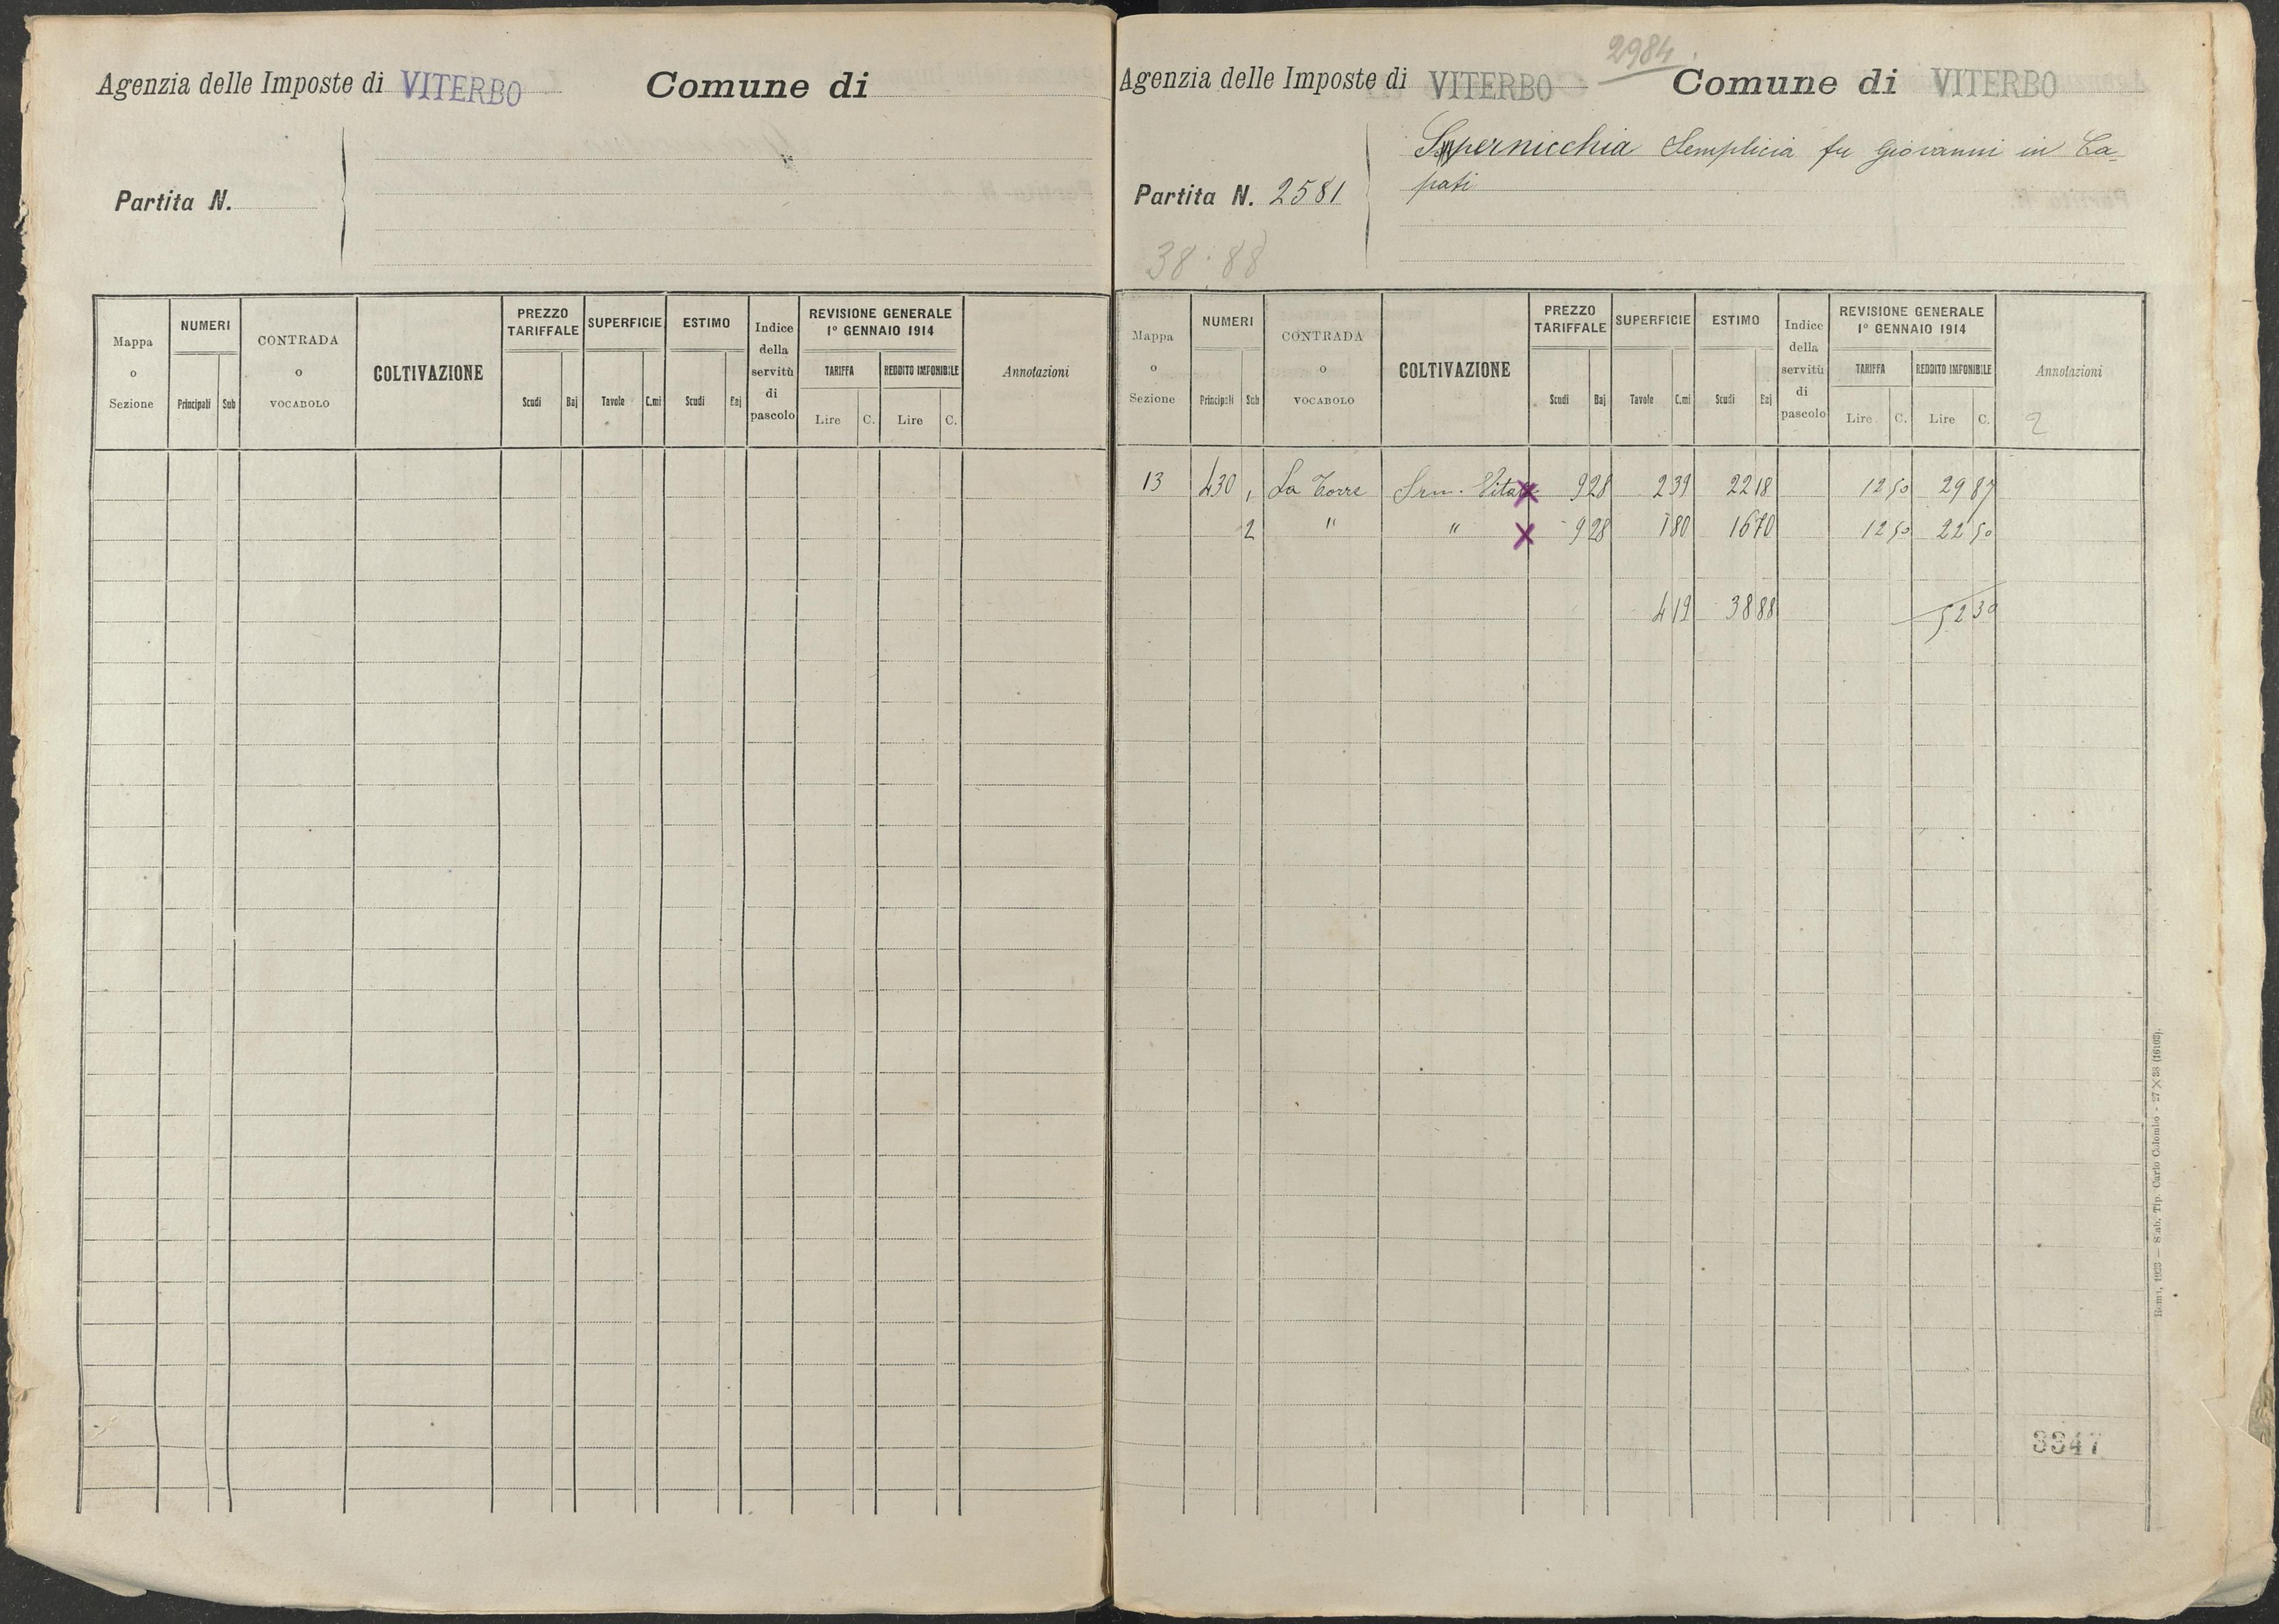 Agenzia delle Imposte di VITERBO Comune di
Partita N.
Mappa o Sezione
NUMERI
Principali Sub
CONTRADA o VOCABOLO
COLTIVAZIONE
PREZZO TARIFFALE
Scudi Baj
SUPERFICIE
Tavole C.mi
ESTIMO
Scudi Baj
Indice della servitù di pascolo
REVISIONE GENERALE
1º GENNAIO 1914
TARIFFA REDDITO IMPONIBILE
Lire C. Lire C.
Annotazioni
2984
Agenzia delle Imposte di VITERBO Comune di VITERBO
Semplicia fu Giovanni in Ca-
pati
Partita N. 2581
38:88
Mappa o Sezione
NUMERI
Principali Sub
CONTRADA o VOCABOLO
COLTIVAZIONE
PREZZO TARIFFALE
Scudi Baj
SUPERFICIE
Tavole C.mi
ESTIMO
Scudi Baj
Indice della servitù di pascolo
REVISIONE GENERALE
1º GENNAIO 1914
TARIFFA REDDITO IMPONIBILE
Lire C. Lire C.
Annotazioni
2
13 430 1 La Torre Sem. Vitat X 9 28 2 39 22 18 12 50 29 87
2 " " X 9 28 1 80 16 70 12 50 22 50
4 19 38 88 52 30
3347
Roma, 1923 — Stab. Tip. Carlo Colombo - 27 X 38 (16103).